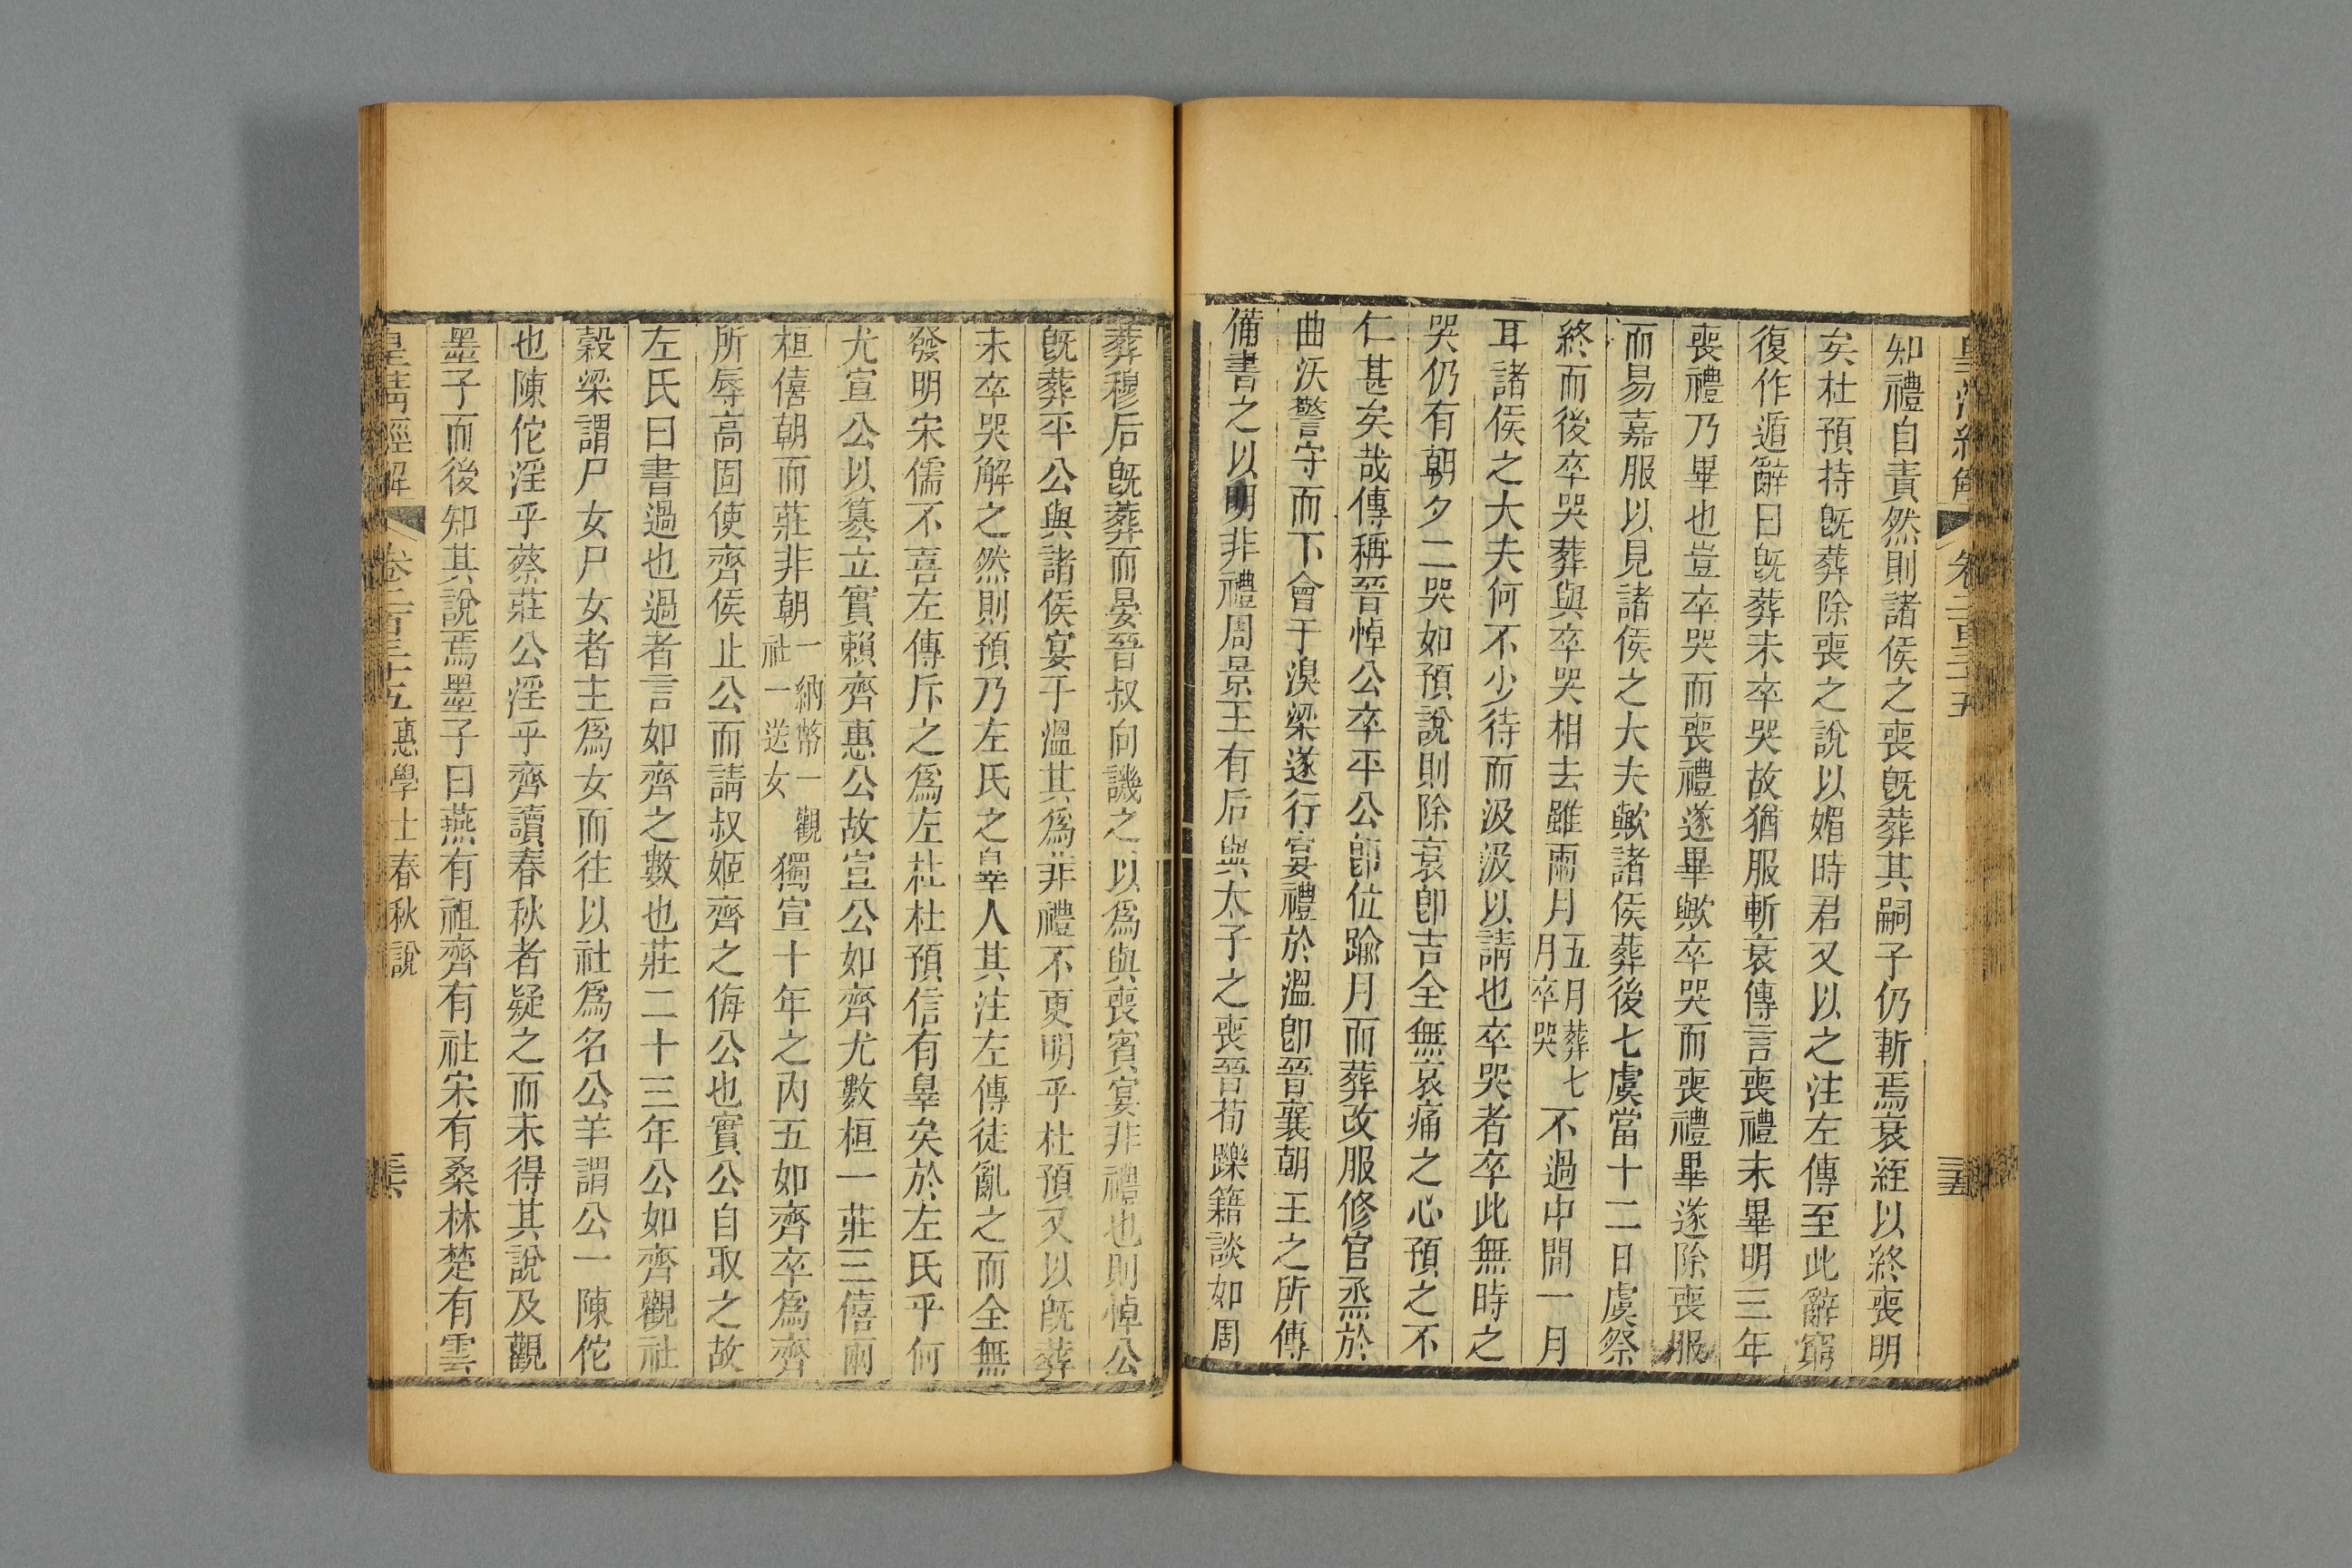 皇清經解 卷二百三十五 三五
知禮自責然則諸侯之喪旣葬其嗣子仍斬焉衰絰以終喪明
矣杜預持旣葬除喪之說以媚時君又以之注左傳至此辭窮
復作遁辭曰旣葬未卒哭故猶服斬衰傳言喪禮未畢明三年
喪禮乃畢也豈卒哭而喪禮遂畢歟卒哭而喪禮畢遂除喪服
而易嘉服以見諸侯之大夫歟諸侯葬後七虞當十二日虞祭
終而後卒哭葬與卒哭相去雖兩月五月葬七月卒哭不過中間一月
耳諸侯之大夫何不少待而汲汲以請也卒哭者卒此無時之
哭仍有朝夕二哭如預說則除衰卽吉全無哀痛之心預之不
仁甚矣哉傳稱晉悼公卒平公卽位踰月而葬改服修官烝於
曲沃警守而下會于湨梁遂行宴禮於溫卽晉襄朝王之所傳
備書之以明非禮周景王有后與太子之喪晉荀躒籍談如周
葬穆后旣葬而晏晉叔向譏之以爲與喪賓宴非禮也則悼公
旣葬平公與諸侯宴于溫其爲非禮不更明乎杜預又以旣葬
未卒哭解之然則預乃左氏之辠人其注左傳徒亂之而全無
發明宋儒不喜左傳斥之爲左杜杜預信有辠矣於左氏乎何
尤宣公以篡立實賴齊惠公故宣公如齊尤數桓一莊三僖兩
桓僖朝而莊非朝一納幣一觀社一送女獨宣十年之內五如齊卒爲齊
所辱高固使齊侯止公而請叔姬齊之侮公也實公自取之故
左氏曰書過也過者言如齊之數也莊二十三年公如齊觀社
穀梁謂尸女尸女者主爲女而往以社爲名公羊謂公一陳佗
也陳佗淫乎蔡莊公淫乎齊讀春秋者疑之而未得其說及觀
墨子而後知其說焉墨子曰燕有祖齊有社宋有桑林楚有雲
皇清經解 卷二百三十五 惠學士春秋說 三六